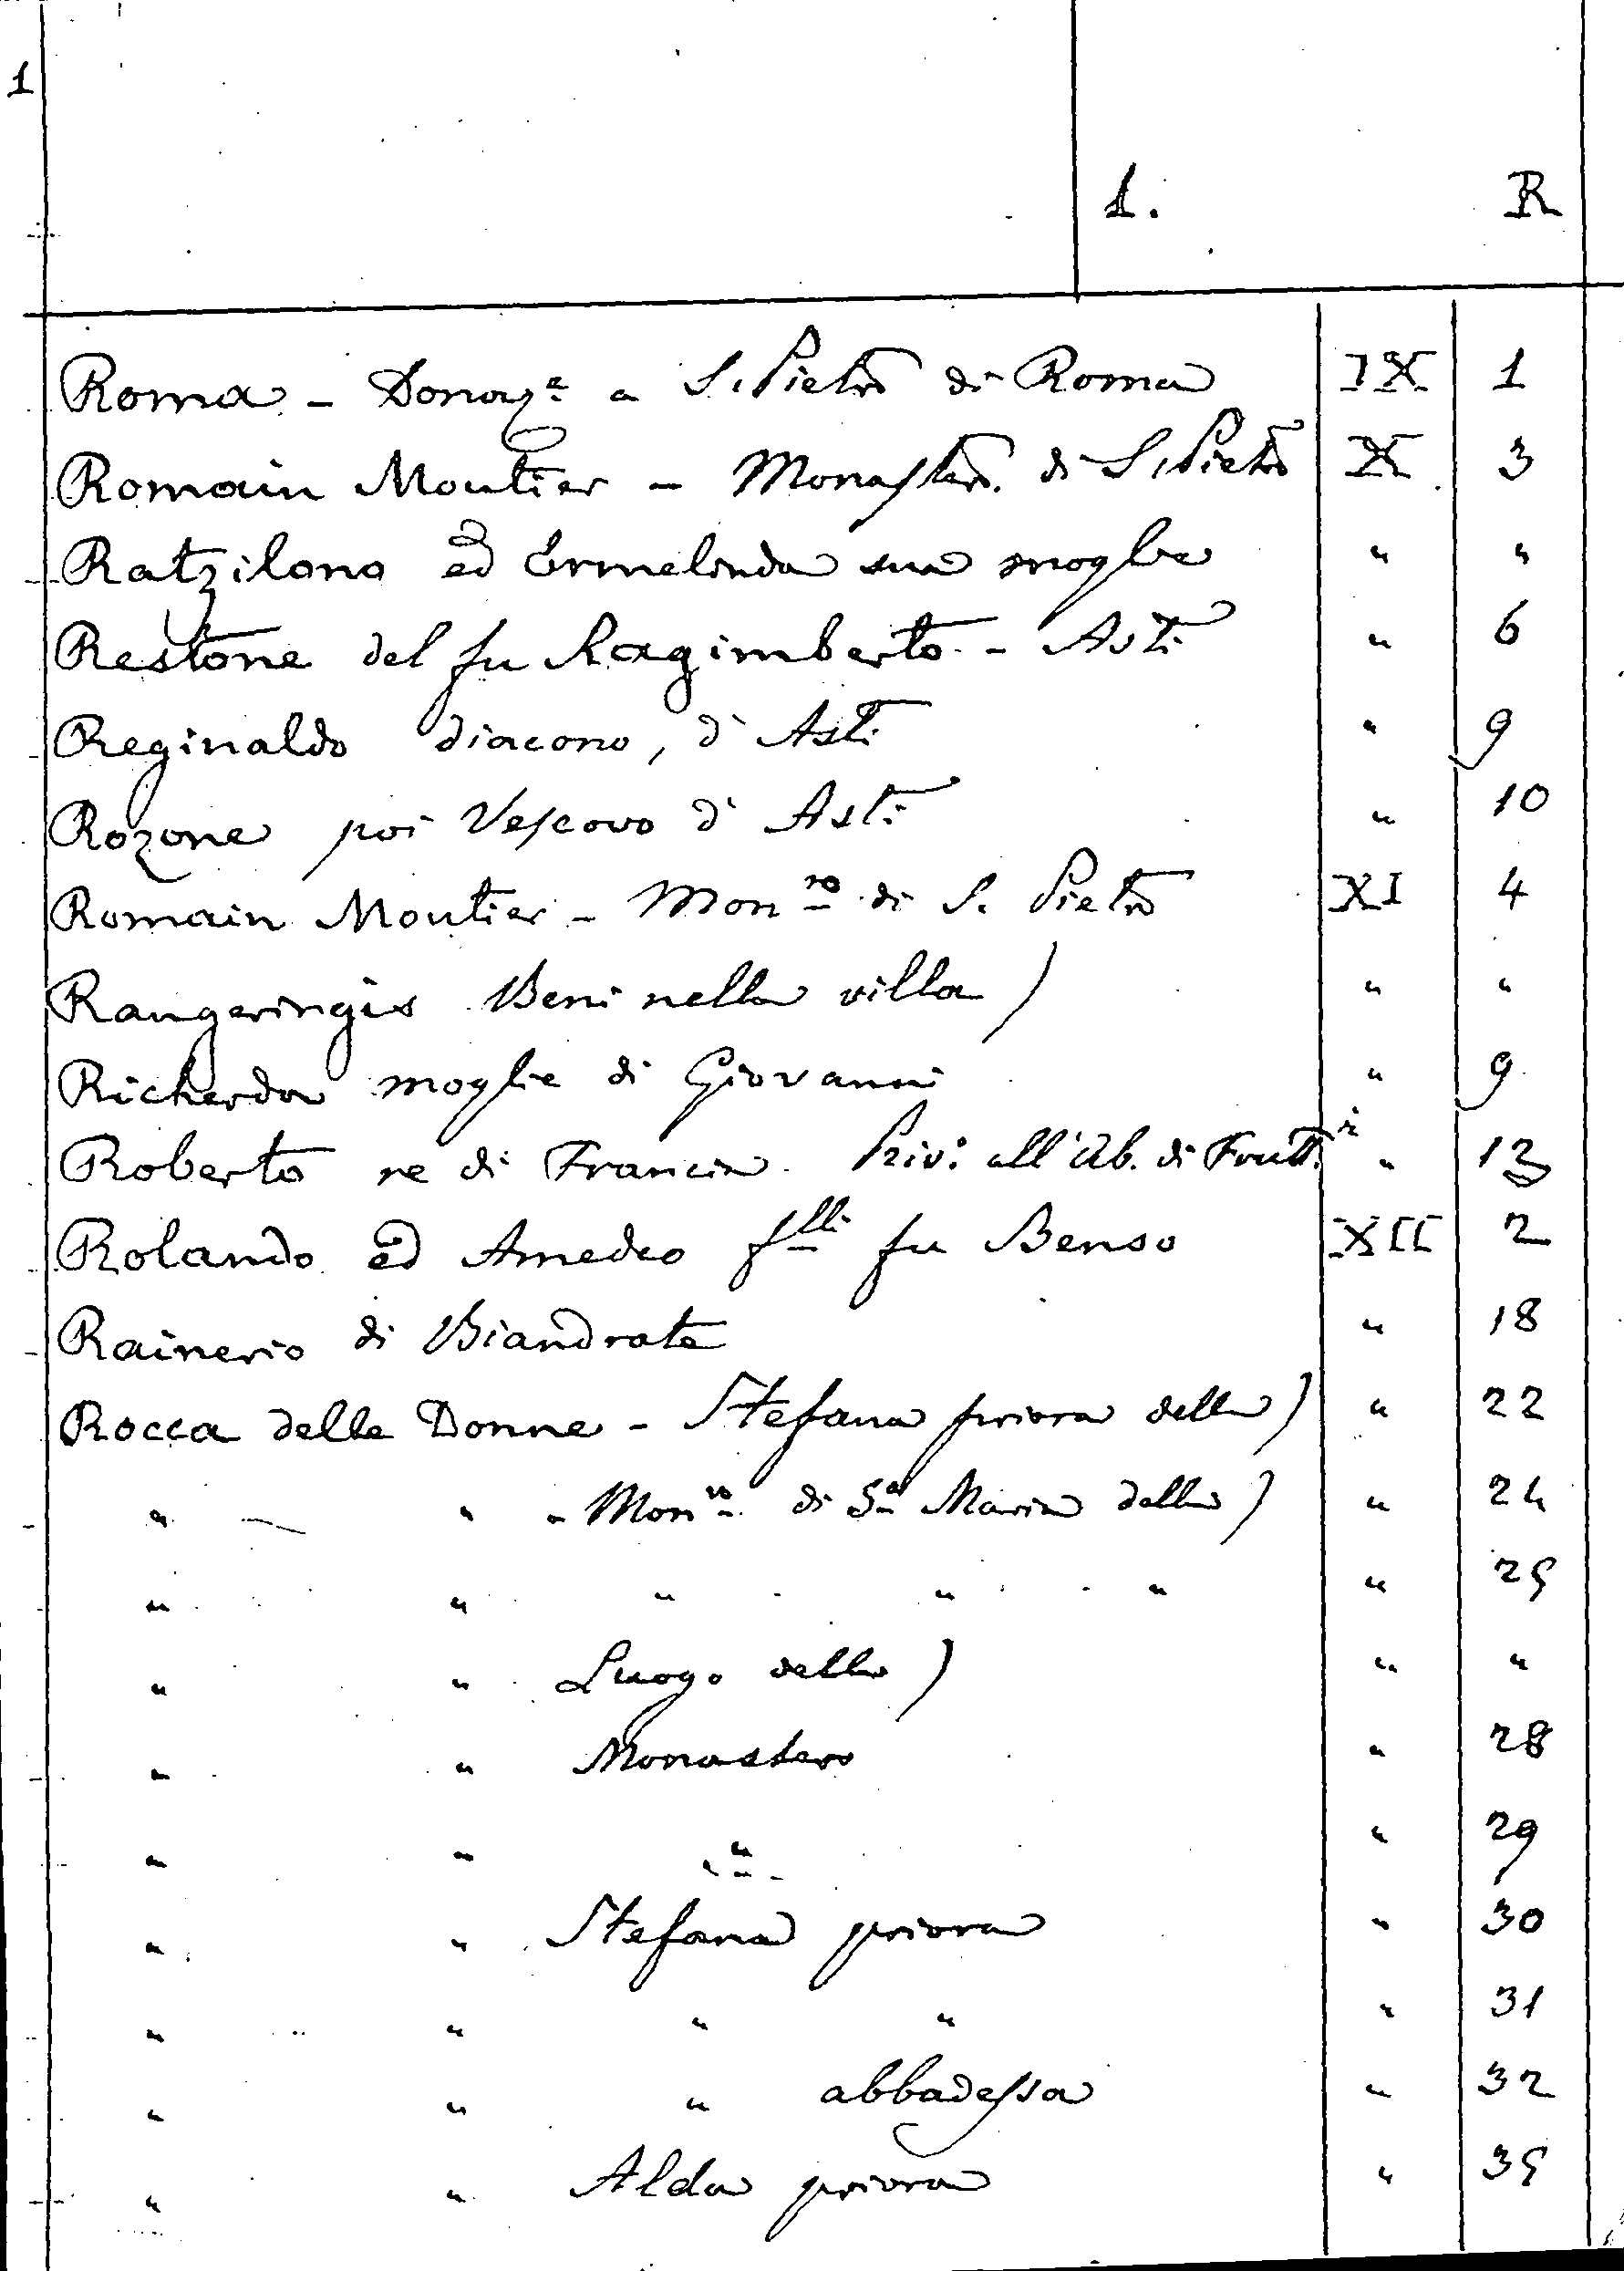 1
1. R
Roma - Donaz.e a S. Pietro di Roma IX 1
Romain Moutier - Monastero. di S. Pietro X 3
Ratzilono ed Ermelinda sua moglie " "
Restone del fu Ragimberto - Asti " 6
Reginaldo diacono, d'Asti " 9
Rozone poi Vescovo d'Asti " 10
Romain Moutier - Mon.ro di S. Pietro XI 4
Rangeringis Beni nella villa) " "
Richerda moglie di Giovanni " 9
Roberto re di Francia. Priv.o all'Ab. di Frutt.ri " 13
Rolando ed Amedeo f.lli fu Benso XII 2
Rainerio di Biandrate " 18
Rocca delle Donne - Stefana priora delle) " 22
" " - Mon.ro di S.a Maria delle) " 24
" " " " " " 25
" " Luogo delle) " "
" " Monastero " 28
" " " " 29
" " Stefana priora " 30
" " " " " 31
" " " abbadessa " 32
" " Alda priora " 35